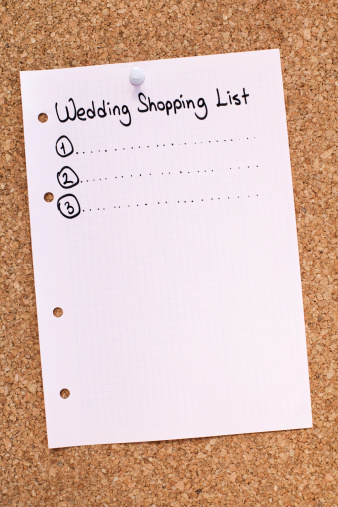 Wedding Shopping List
1....................
2....................
3....................